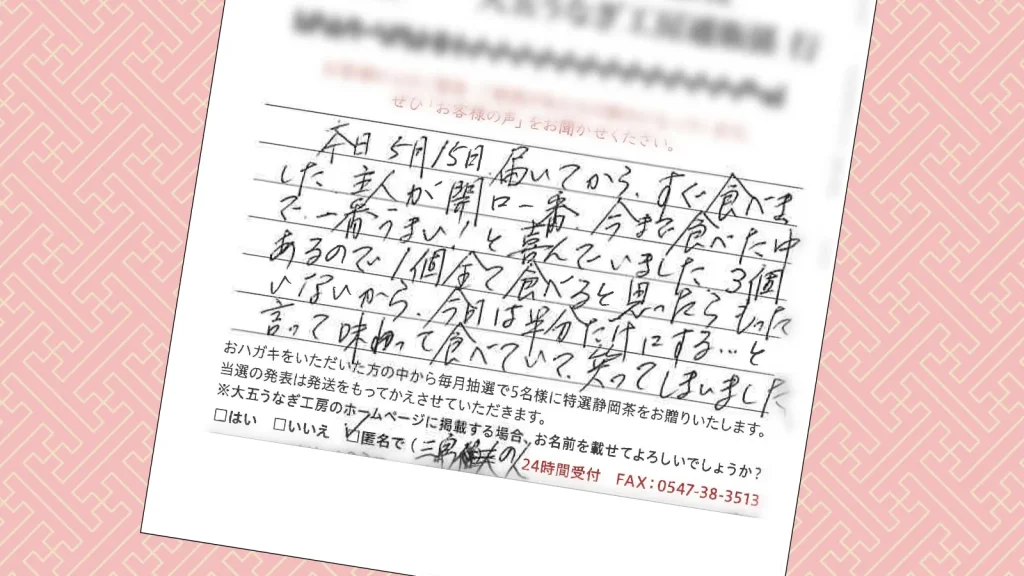 大五うなぎ工房通販係 行
ぜひ「お客様の声」をお聞かせください。
本日5月15日届いてから、すぐ食べま
した 主人が開口一番、今まで食べた中
で、一番うまい!!と喜んでいました 3個
あるので1個全て食べると思ったらもった
いないから、今日は半分だけにする…と
言って味わって食べていて、笑ってしまいました
おハガキをいただいた方の中から毎月抽選で5名様に特選静岡茶をお贈りいたします。
当選の発表は発送をもってかえさせていただきます。
※大五うなぎ工房のホームページに掲載する場合、お名前を載せてよろしいでしょうか?
□はい □いいえ □匿名で(
の人
24時間受付 FAX:0547-38-3513